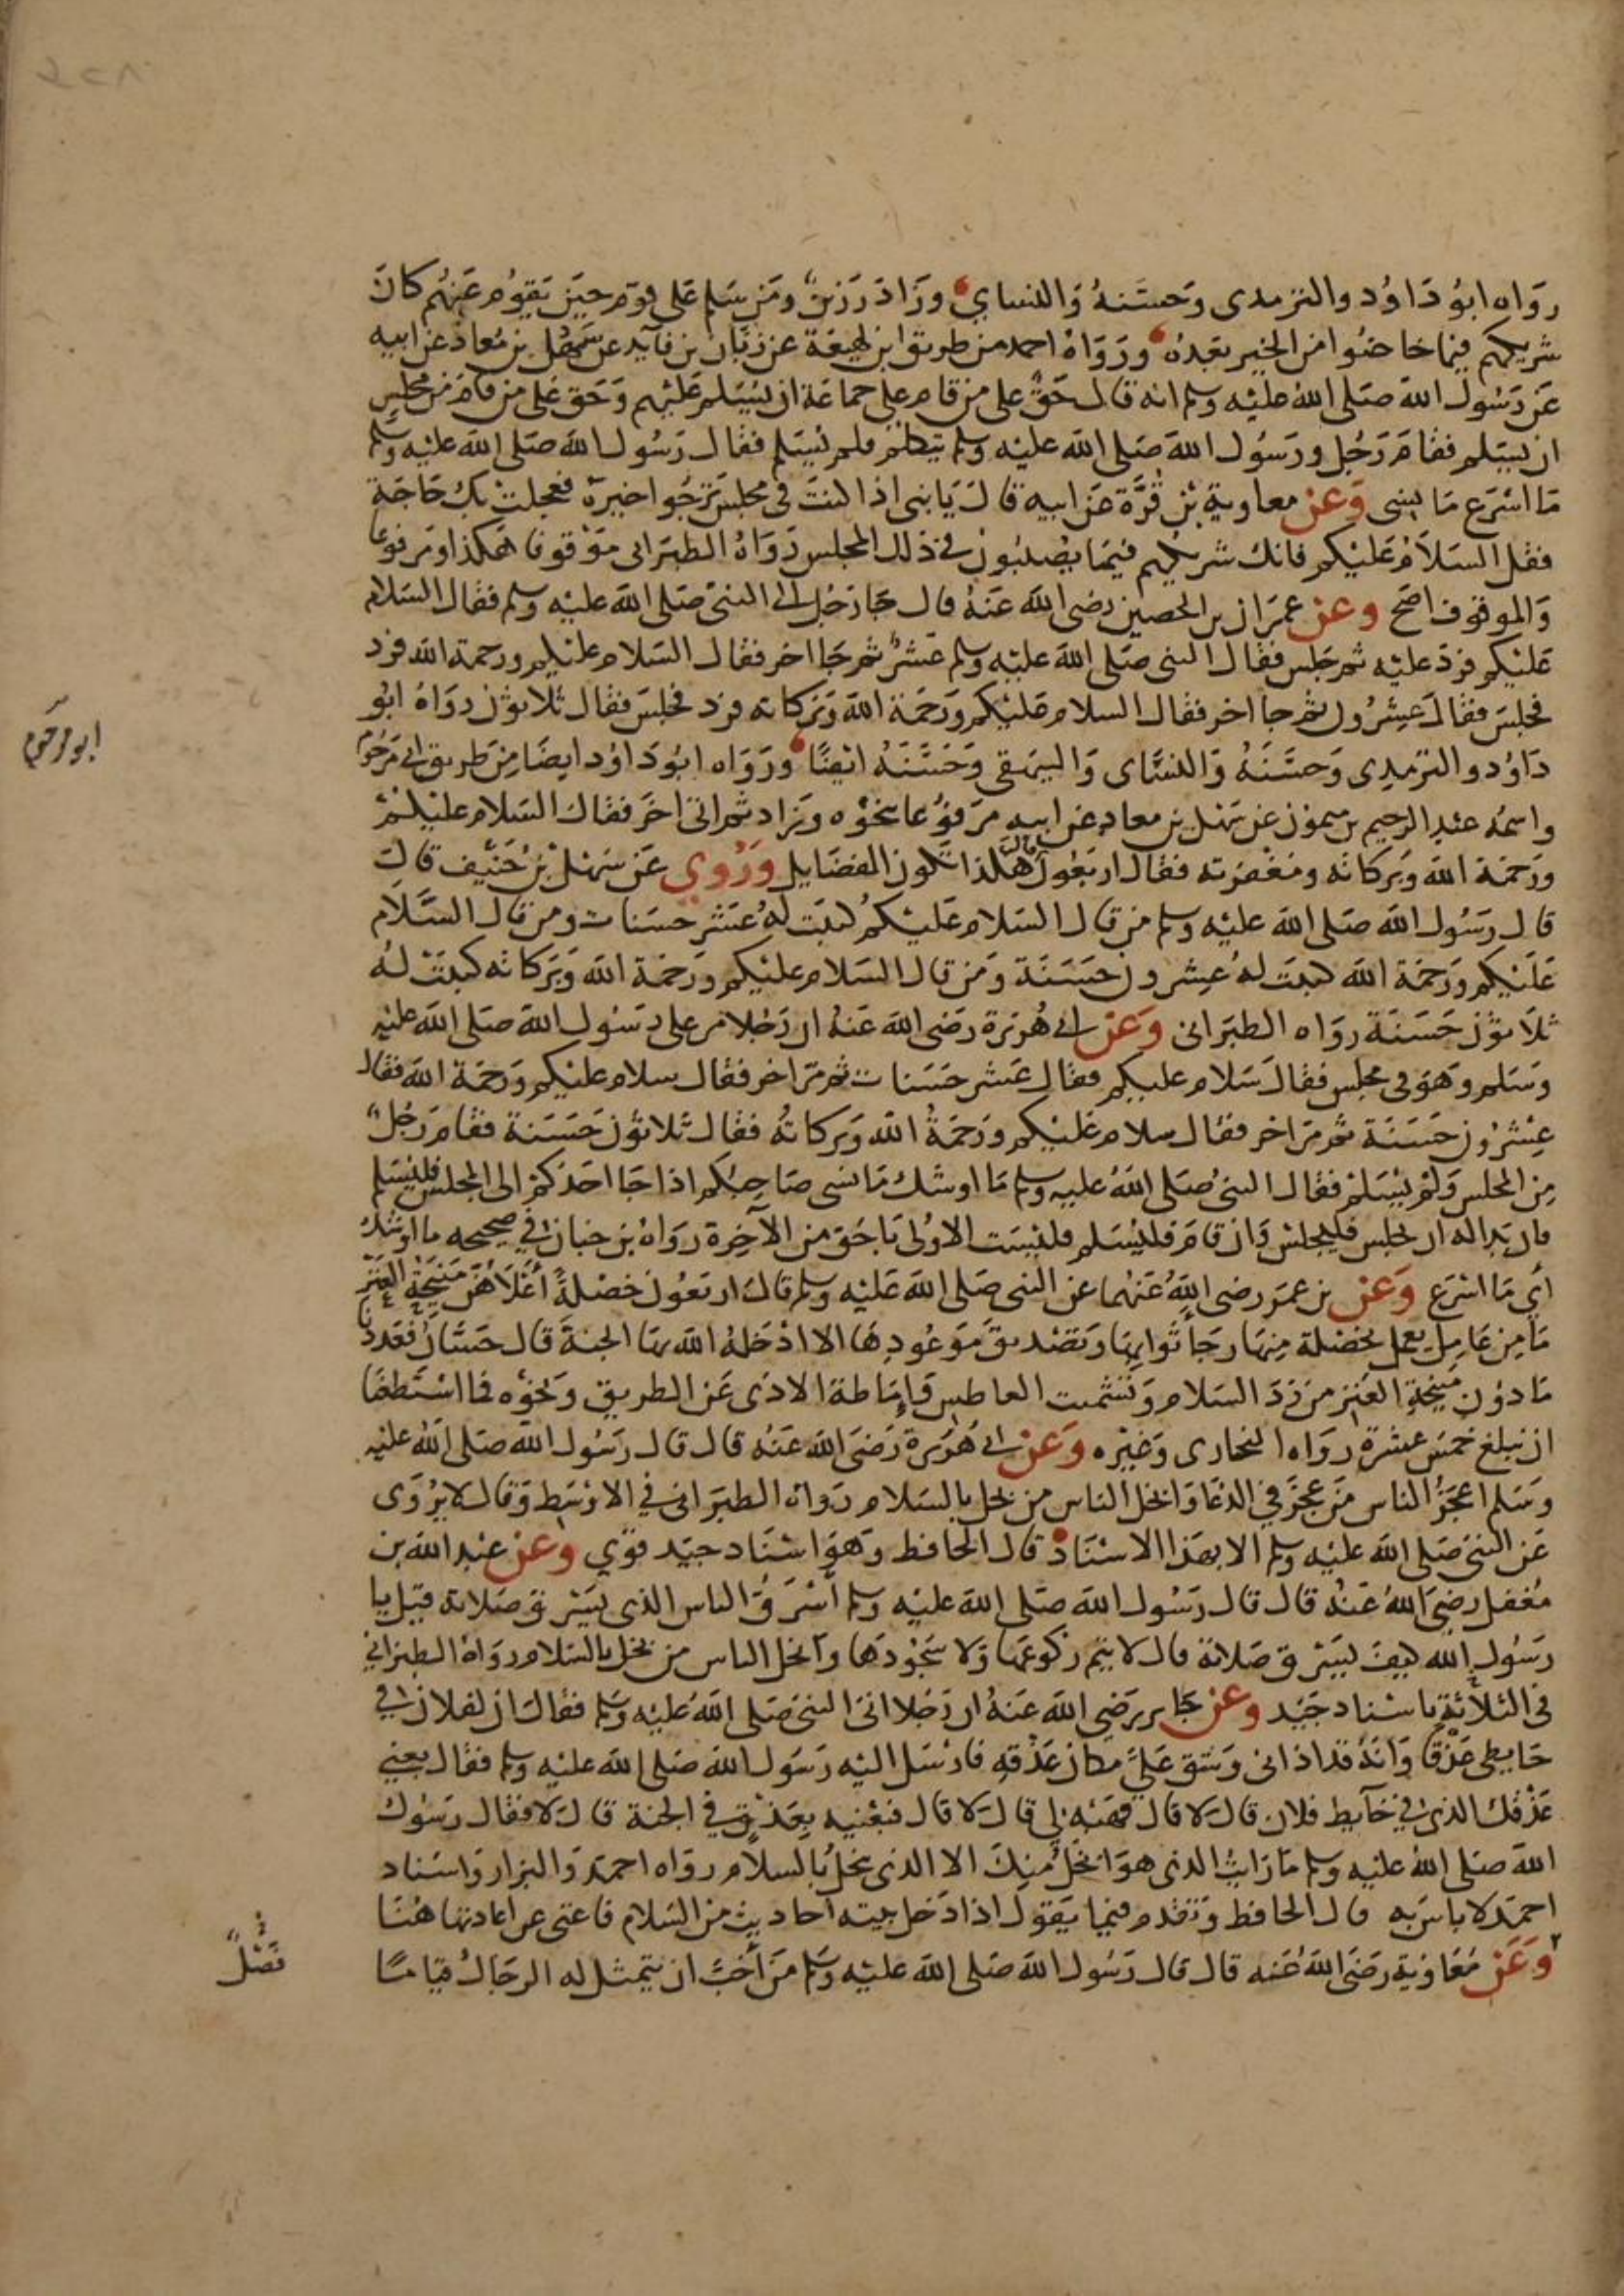 رواه ابو داود والترمذى وحسنه والنساي وزاد رزين ومن سلم على قوم حين يقوم عنهم كان
شريكهم فيما خاضوا من الخير بعده ورواه احمد من طريق ابن لهيعة عن زبان بن فآيد عن سهل بن معاذ عن ابيه
عن رسول الله صلى الله عليه وسلم انه قال حق على من قام على جماعة ان يسلم عليهم وحق على من قام من مجلس
ان يسلم فقام رجل ورسول الله صلى الله عليه وسلم يتكلم فلم يسلم فقال رسول الله صلى الله عليه وسلم
ما اسرع ما نسى وعن معاوية بن قرة عن ابيه قال يا بنى اذا كنت فى مجلس ترجوا خيره فعجلت بك حاجة
فقل السلام عليكم فانك شريكهم فيما يصيبون فى ذلك المجلس رواه الطبرانى موقوفا هكذا ومرفوعا
والموقوف اصح وعن عمران بن الحصين رضى الله عنه قال جا رجل الى النبى صلى الله عليه وسلم فقال السلام
عليكم فرد عليه ثم جلس فقال النبى صلى الله عليه وسلم عشر ثم جا اخر فقال السلام عليكم ورحمة الله فرد
فجلس فقال عشرون ثم جا اخر فقال السلام عليكم ورحمة الله وبركاته فرد فجلس فقال ثلاثون رواه ابو
داود والترمذى وحسنه والنساى والبيهقى وحسنه ايضا ورواه ابو داود ايضا من طريق ابى مرحوم
واسمه عبد الرحيم بن ميمون عن سهل بن معاذ عن ابيه مرفوعا بنحوه وزاد ثم اتى اخر فقال السلام عليكم
ورحمة الله وبركاته ومغفرته فقال اربعون قال هكذا تكون الفضايل وروي عن سهل بن حنيف قال
قال رسول الله صلى الله عليه وسلم من قال السلام عليكم كتبت له عشر حسنات ومن قال السلام
عليكم ورحمة الله كتبت له عشرون حسنة ومن قال السلام عليكم ورحمة الله وبركاته كتبت له
ثلاثون حسنة رواه الطبرانى وعن ابى هريرة رضى الله عنه ان رجلا مر على رسول الله صلى الله عليه
وسلم وهو فى مجلس فقال سلام عليكم فقال عشر حسنات ثم مر اخر فقال سلام عليكم ورحمة الله فقال
عشرون حسنة ثم مر اخر فقال سلام عليكم ورحمة الله وبركاته فقال ثلاثون حسنة فقام رجل
من المجلس ولم يسلم فقال النبى صلى الله عليه وسلم ما اوشك ما نسى صاحبكم اذا جا احدكم الى المجلس فليسلم
فان بدا له ان يجلس فليجلس وان قام فليسلم فليست الاولى باحق من الآخرة رواه بن حبان فى صحيحه ما اوشك
اي ما اسرع وعن بن عمر رضى الله عنهما عن النبى صلى الله عليه وسلم قال اربعون خصلة أعلاهن منيحة العنز
ما من عامل يعمل بخصلة منها رجا ثوابها وتصديق موعودها الا ادخله الله بها الجنة قال حسان فعددنا
ما دون منيحة العنز من رد السلام وتشميت العاطس وإماطة الاذى عن الطريق ونحوه فما استطعنا
ان نبلغ خمس عشرة رواه البخارى وغيره وعن ابى هريرة رضى الله عنه قال قال رسول الله صلى الله عليه
وسلم اعجز الناس من عجز فى الدعا وابخل الناس من بخل بالسلام رواه الطبرانى فى الاوسط وقال لا يروى
عن النبى صلى الله عليه وسلم الا بهذا الاسناد قال الحافظ وهو اسناد جيد قوي وعن عبد الله بن
مغفل رضى الله عنه قال قال رسول الله صلى الله عليه وسلم أسرق الناس الذى يسرق صلاته قيل يا
رسول الله كيف يسرق صلاته قال لا يتم ركوعها ولا سجودها وابخل الناس من بخل بالسلام رواه الطبرانى
فى الثلاثة باسناد جيد وعن جابر رضى الله عنه ان رجلا اتى النبى صلى الله عليه وسلم فقال ان لفلان فى
حايطى عذقا وانه قد اذانى وشق على مكان عذقه فارسل اليه رسول الله صلى الله عليه وسلم فقال بعني
عذقك الذى فى حآيط فلان قال لا قال فهبه لى قال لا قال فبعنيه بعذق فى الجنة قال لا فقال رسول
الله صلى الله عليه وسلم ما رايت الذى هو ابخل منك الا الذى يبخل بالسلام رواه احمد والبزار واسناد
احمد لا باس به قال الحافظ وتقدم فيما يقول اذا دخل بيته احاديث من السلام فاغنى عن اعادتها هنا
وعن معاوية رضى الله عنه قال قال رسول الله صلى الله عليه وسلم من أحب ان يتمثل له الرجال قياما
ابو مرحوم
فصل